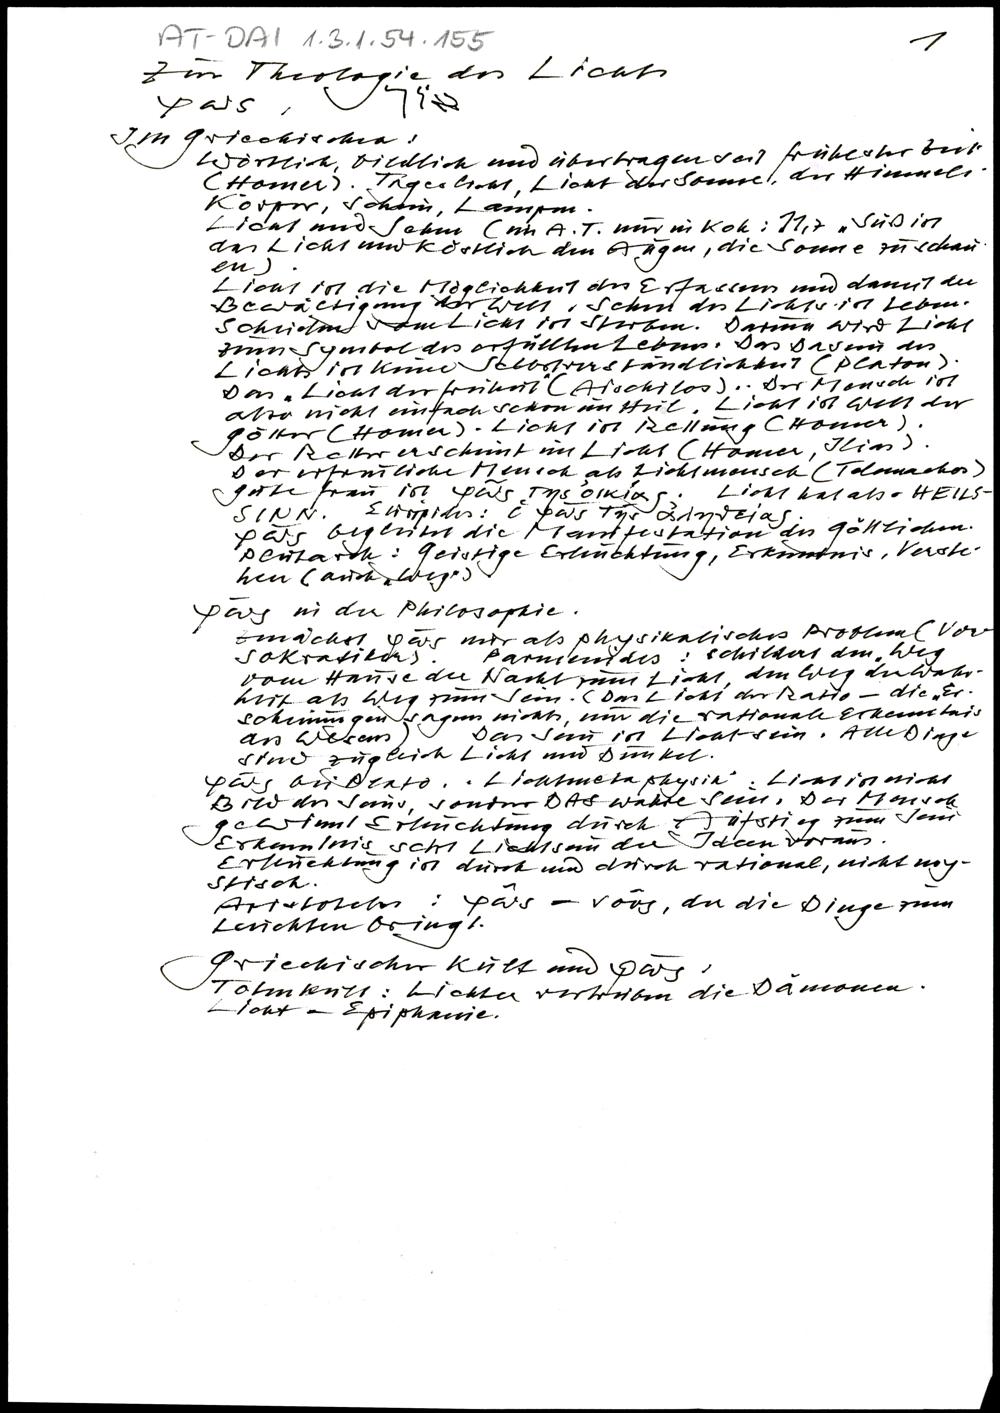 AT-DAI 1.3.1.54.155
1
Zur Theologie des Lichts
φῶς,
Im Griechischen:
Wörtlich, bildlich und übertragen seit frühester Zeit
(Homer). Tageslicht, Licht der Sonne, der Himmels-
Körper, Schein, Lampen.
Licht und Sehen (im A.T. nur in Koh: 11,7 „Süß ist
das Licht und köstlich den Augen, die Sonne zu schau
en).
Licht ist die Möglichkeit des Erfassens und damit der
Bewältigung der Welt, Sehen des Lichts ist Leben.
Scheiden vom Licht ist Sterben. Darum wird Licht
zum Symbol des erfüllten Lebens. Das Dasein des
Lichts ist keine Selbstverständlichkeit (Platon).
Das „Licht der Freiheit" (Aischilos).. Der Mensch ist
also nicht einfach schon im Heil. Licht ist Welt der
Götter (Homer). Licht ist Rettung (Homer).
Der Retter erscheint im Licht (Homer, Ilias).
Der erfreuliche Mensch als Lichtmensch (Telemachos)
gute Frau ist φῶς τῆς οἰκίας. Licht hat also HEILS-
SINN. Euripides: φῶς τῆς ἀληθείας.
φῶς begleitet die Manifestation des Göttlichen.
Plutarch: Geistige Erleuchtung, Erkenntnis, Verste-
hen (auch „Weg")
φῶς in der Philosophie.
Zunächst φῶς nur als physikalisches Problem (Vor
sokratiker). Parmenides: schildert den „Weg
vom Hause der Nacht zum Licht, den Weg der Wahr-
heit als Weg zum Sein. (Das Licht der Ratio – die „Er-
scheinungen sagen nichts, nur die rationale Erkenntnis
des Wesens) Das Sein ist Lichtsein. Alle Dinge
sind zugleich Licht und Dunkel.
φῶς bei Plato. „Lichtmetaphysik". Licht ist nicht
Bild des Seins, sondern DAS wahre Sein. Der Mensch
gewinnt Erleuchtung durch Aufstieg zum Sein
Erkenntnis setzt Lichtsein der Ideen voraus.
Erleuchtung ist durch und durch rational, nicht my-
stisch.
Aristoteles: φῶς – νοῦς, der die Dinge zum
Leuchten bringt.
Griechischer Kult und φῶς:
Totenkult: Lichter vertreiben die Dämonen.
Licht – Epiphanie.